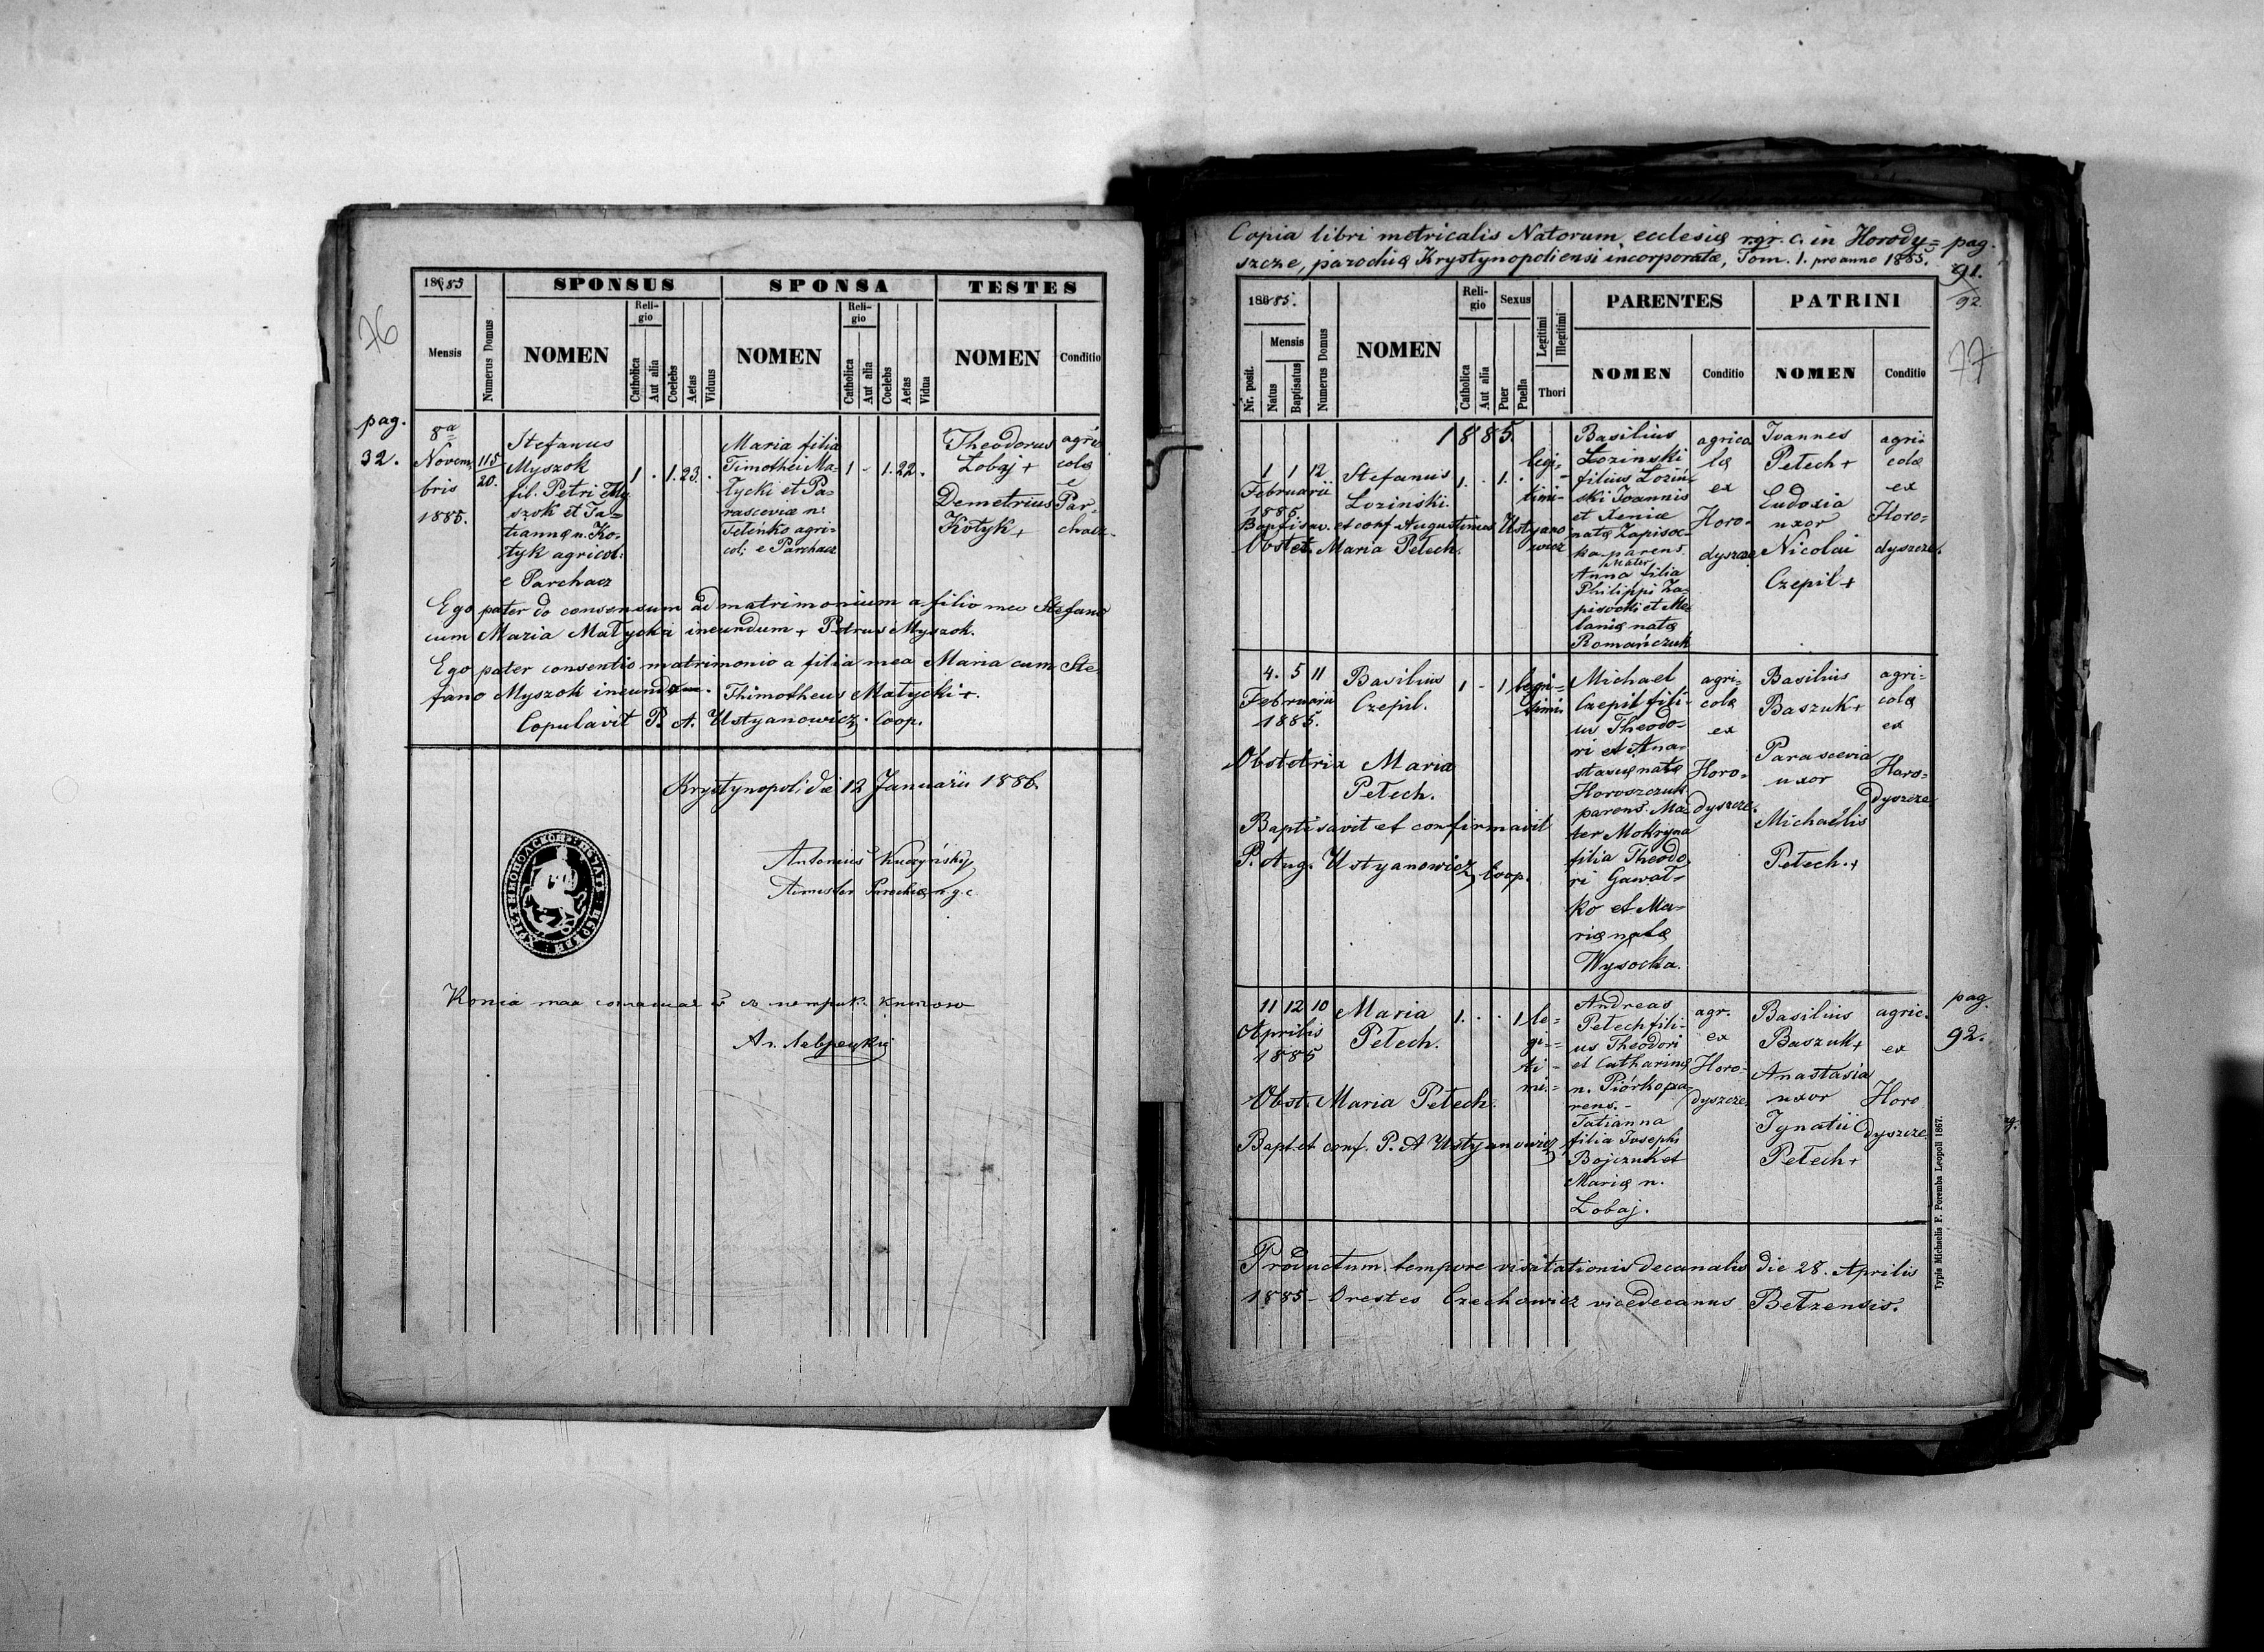 76
1885
SPONSUS
SPONSA
TESTES
Mensis
Numerus Domus
NOMEN
Religio
Catholica
Aut alia
Coelebs
Aetas
Viduus
NOMEN
Religio
Catholica
Aut alia
Coelebs
Aetas
Vidua
NOMEN
Conditio
pag.
32.
8a
Novem
bris
1885.
115
20.
Stefanus
Myszok
fil. Petri My
szok et Ta=
tiannæ n. Ko=
tyk agricol:
e Parchacz
1 . 1. 23. .
Maria filia
Timothei Ma=
łycki et Pa=
rasceviæ n:
Teleńko agri=
col: e Parchacz
1 - 1. 22. .
Theodorus
Łobaj +
Demetrius
Kotyk +
agri
colæ
e
Par=
chacz.
Ego pater do consensum ad matrimonium a filio meo Stefano
cum Maria Małycki ineundum + Petrus Myszok.
Ego pater consentio matrimonio a filia mea Maria cum Ste
fano Myszok ineundum. Thimotheus Małycki +.
Copulavit P. A. Ustyanowicz Coop.
Krystynopoli die 12 Januarii 1886.
Antonius Kuczyńskyj
Parochiæ r.g.c.
Copia libri metricalis Natorum ecclesiæ r.gr.c. in Horody=
szcze, parochiæ Krystynopoliensi incorporatæ, Tom. 1. pro anno 1885.
pag.
91.
92.
77
1885.
Mensis
Nr. posit.
Natus
Baptisatus
Numerus Domus
NOMEN
Religio
Catholica
Aut alia
Sexus
Puer
Puella
Legitimi
Illegitimi
Thori
PARENTES
NOMEN
Conditio
PATRINI
NOMEN
Conditio
1885.
1 1 12
Februarii
1885
Stefanus
Łozinski
1. . 1. .
legi=
timi=
Baptisav. et conf. Augustinus Ustyano
wicz
Obstet. Maria Petech.
Basilius
Łozinski
filius Łozin=
ski Joannis
et Xeniæ
natæ Zapisoc=
ka parens.
Mater
Anna filia
Philippi Za=
pisocki et Me=
laniæ natæ
Romańczuk
agrico
læ
ex
Horo=
dyszcze
Joannes
Petech +
Eudoxia
uxor
Nicolai
Czepil +
agri=
colæ
ex
Horo=
dyszcze.
4. 5 11
Februarii
1885.
Basilius
Czepil.
1 - 1
legi=
timi.
Obstetrix Maria
Petech.
Baptisavit et confirmavit
P. Aug. Ustyanowicz Coop.
Michael
Czepil fili=
us Theodo=
ri et Ana=
stasiæ natæ
Horoszczuk
parens. Ma=
ter Mokryna
filia Theodo
ri Gawał=
ko et Ma=
riæ natæ
Wysocka.
agri=
colæ
ex
Horo=
dyszcze.
Basilius
Baszuk +
Parascevia
uxor
Michaelis
Petech. +
agri=
colæ
ex
Horo=
dyszcze
pag.
92.
11 12 10
Aprilis
1885
Maria
Petech.
1. . . 1
le=
gi=
ti=
mi.=
Obst. Maria Petech.
Bapt. et conf. P. A Ustyanowicz
Andreas
Petech fili=
us Theodori
et Catharinæ
n. Piórko pa=
rens. -
Tatianna
filia Josephi
Bojczuk et
Mariæ n.
Łobaj.
agr.
ex
Horo=
dyszcze.
Basilius
Baszuk +
Anastasia
uxor
Ignatii
Petech +
agric.
ex
Horo
dyszcze
Productum tempore visitationis decanalis die 28. Aprilis
1885 - Orestes Czechowicz vicedecanus Bełzensis.
Typis Michaelis F. Poremba Leopoli 1867.